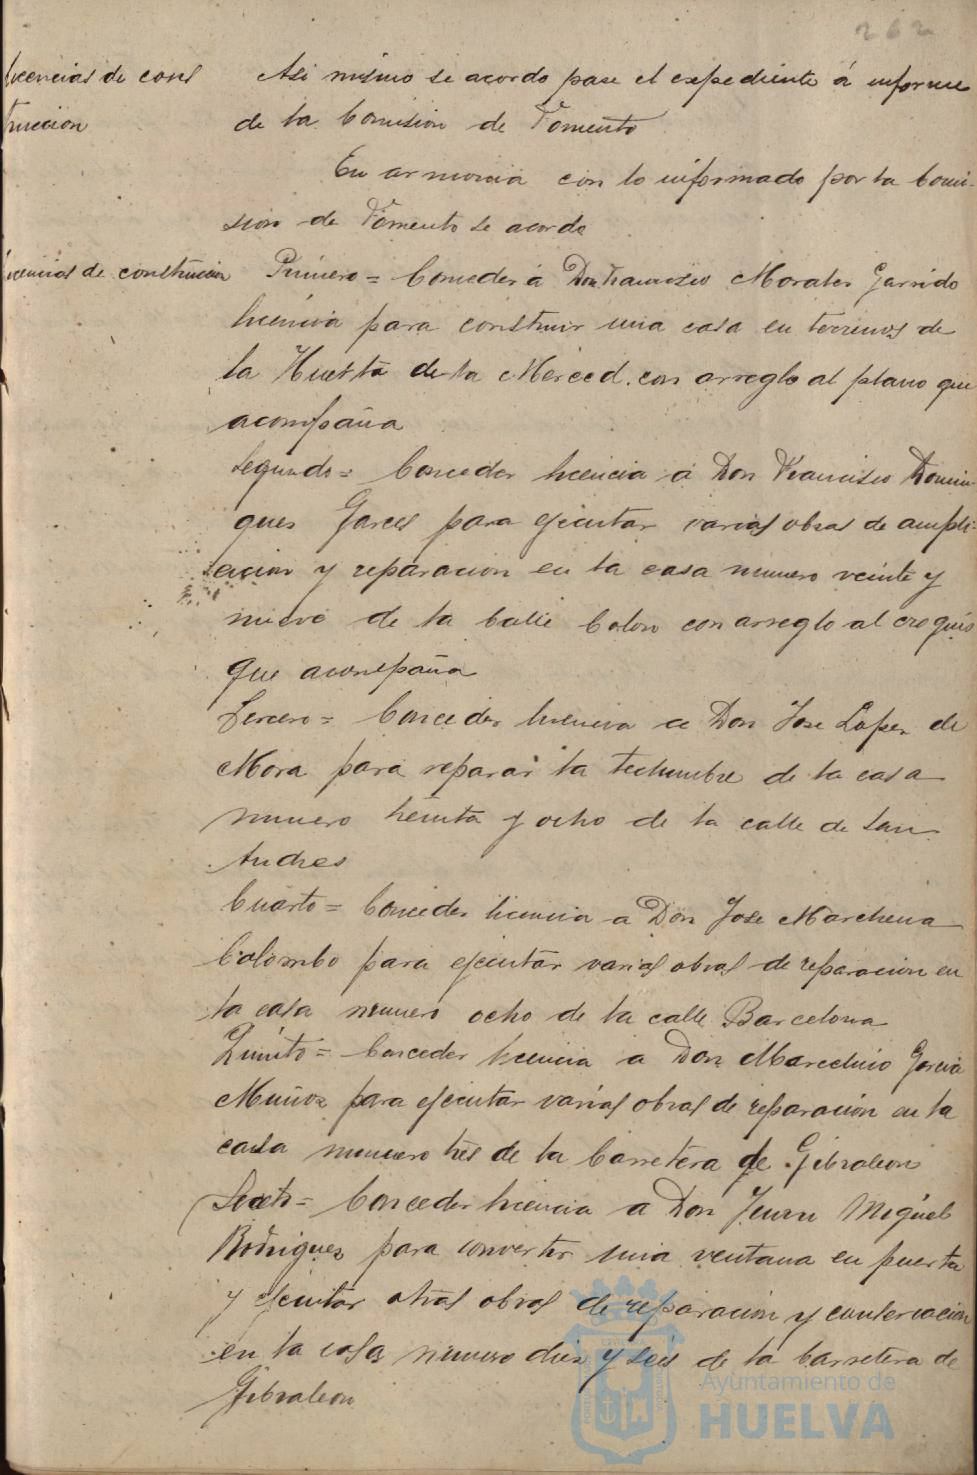 262
licencias de cons
truccion
Asi mismo se acordo pase el expediente á informe
de la Comision de Fomento
En armonia con lo informado por la Comi-
sion de Fomento se acordo
licencias de construccion
Primero = Conceder á Don Francisco Morales Garrido
licencia para construir una casa en terrenos de
la Huerta de la Merced con arreglo al plano que
acompaña
Segundo = Conceder licencia á Don Francisco Domin-
gues Garces para ejecutar varias obras de ampli-
acion y reparacion en la casa numero veinte y
nueve de la Calle Colon con arreglo al croquis
que acompaña
Tercero = Conceder licencia a Don Jose Lopez de
Mora para reparar la techumbre de la casa
numero treinta y ocho de la calle de San
Andres
Cuarto = Conceder licencia a Don Jose Marchena
Colombo para ejecutar varias obras de reparacion en
la casa numero ocho de la calle Barcelona
Quinto = Conceder licencia a Don Marcelino Garcia
Muñoz para ejecutar varias obras de reparación en la
casa numero tres de la Carretera de Gibraleon
Sexto = Conceder licencia a Don Juan Miguel
Rodriguez para convertir una ventana en puerta
y ejecutar otras obras de reparación y conservacion
en la casa numero diez y seis de la Carretera de
Gibraleon
Ayuntamiento de
HUELVA